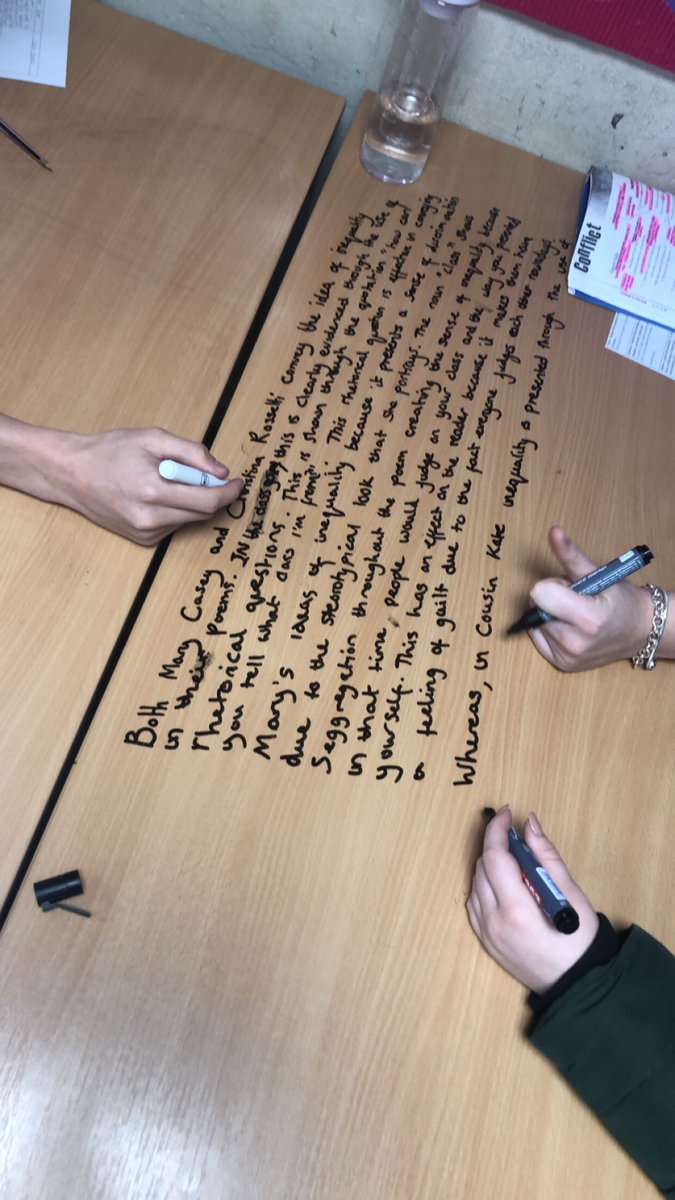 Both Mary Casey and Christina Rosselti convey the idea of inequality
in their poems. IN this is clearly evidenced through the use of
rhetorical questions. This is shown through the quotation "how can
you tell what class I'm from?" This rhetorical question is effective in conveying
Mary's ideas of inequality because it presents a sense of discrimination
due to the stearotypical look that she portrays. The noun "class" shows
Seggregation throughout the poem creating the sense of inequality because
in that time, people would judge on your class and the way you presented
yourself. This has an effect on the reader because it makes them have
a feeling of guilt due to the fact everyone judges each other nowadays.
Whereas, in Cousin Kate inequality is presented through the use of
Conflict